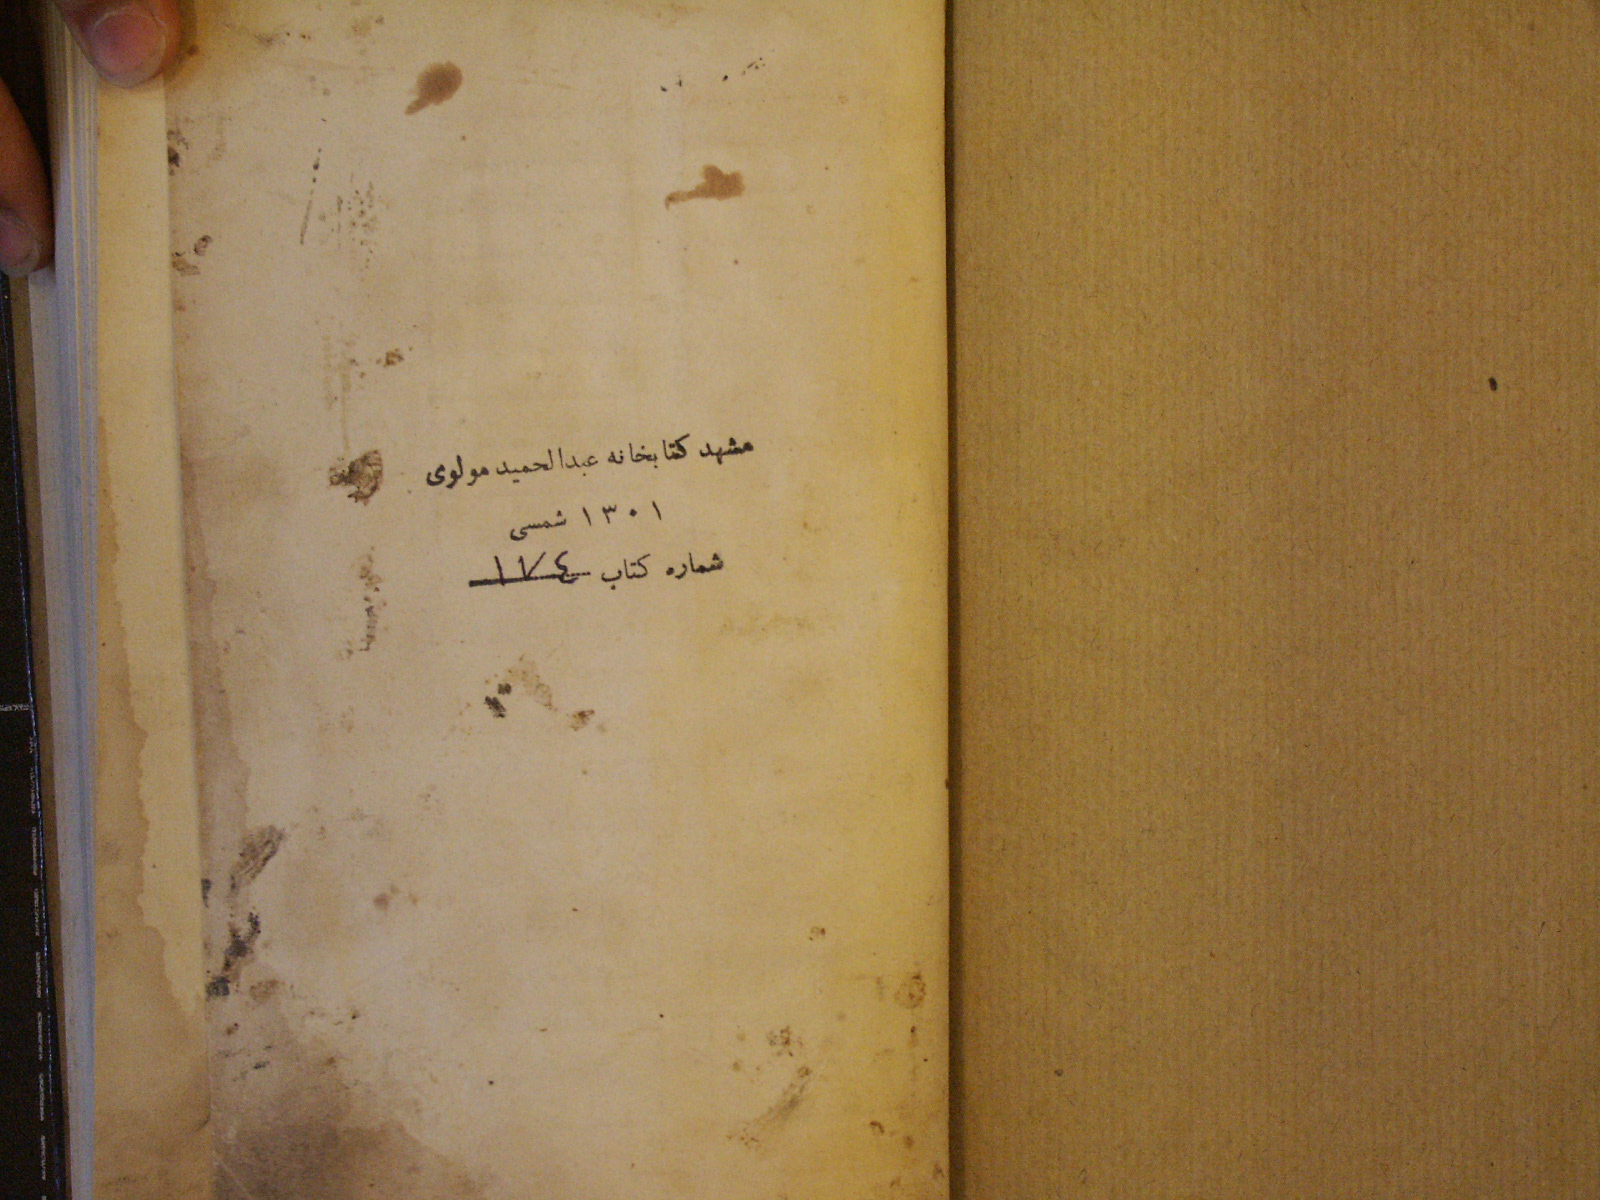 مشهد کتابخانه عبدالحمید مولوی
۱۳۰۱ شمسی
شماره کتاب ١٧٤